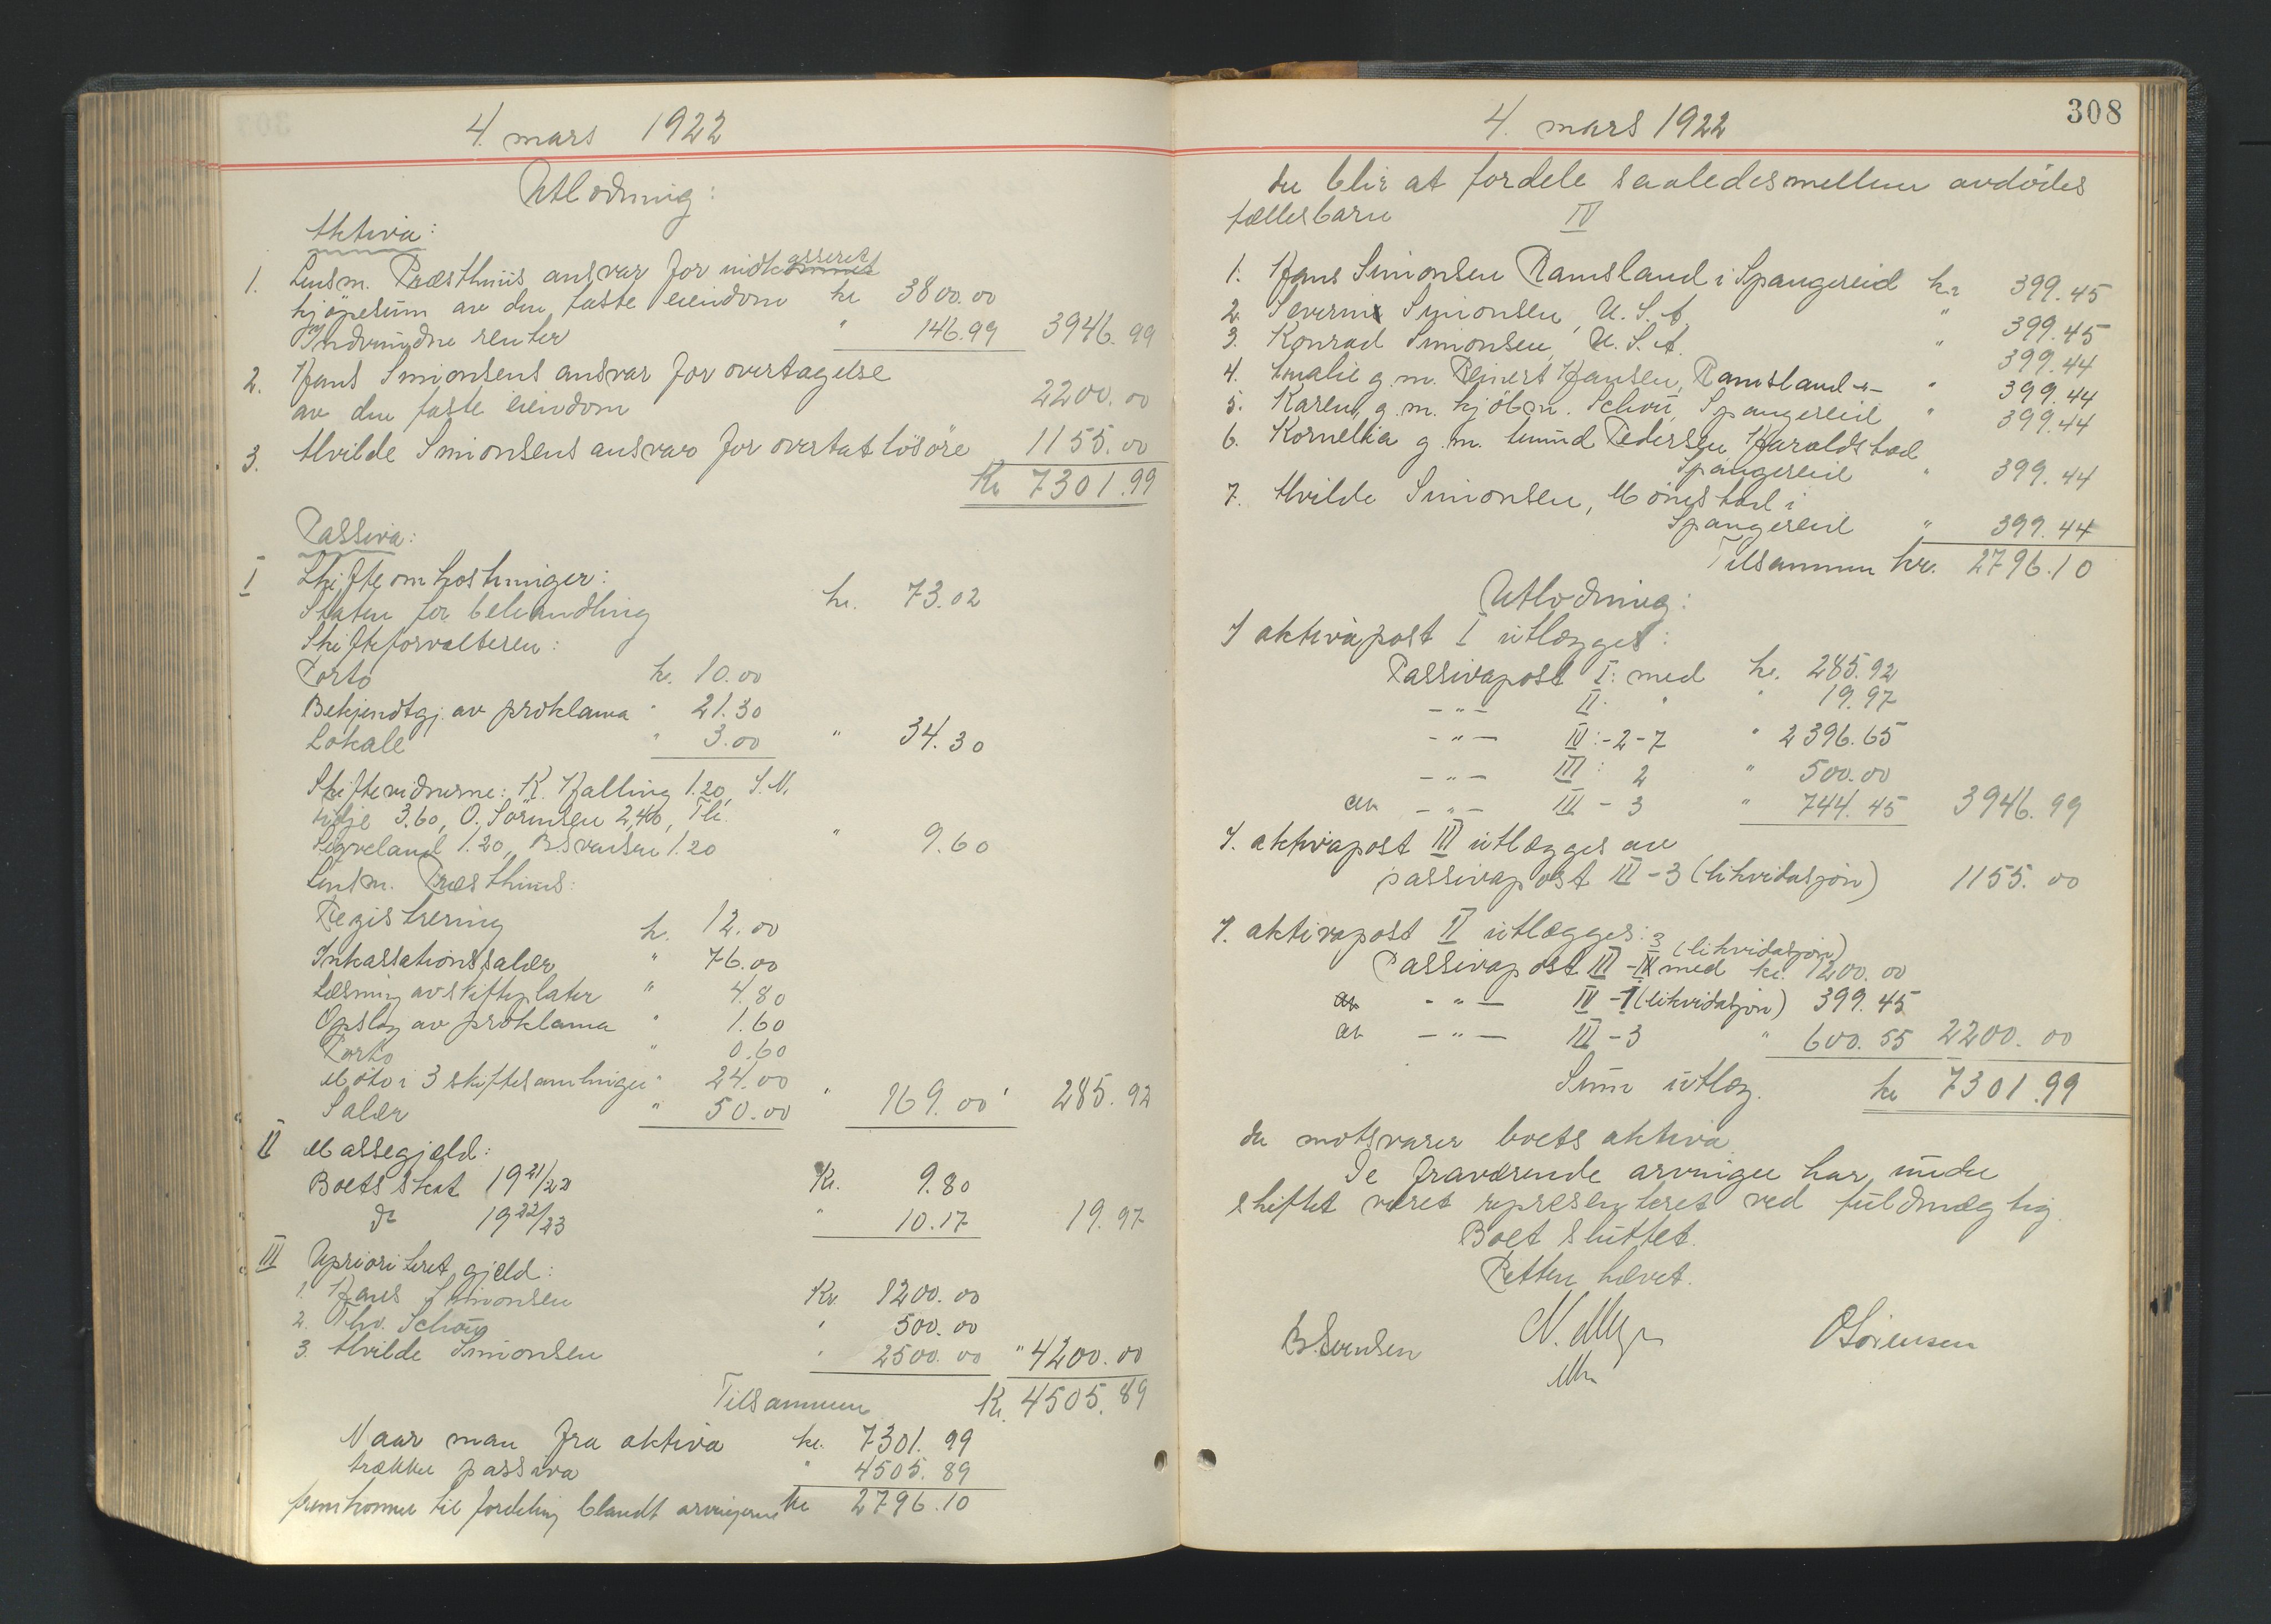 4. mars 1922
Utlodning:
Aktiva:
1. Lensm. Præsthuus ansvar for indkasseret
kjøpesum av den faste eiendom kr 3800.00
Indvundne renter " 146.99 3946.99
2. Hans Simonsens ansvar for overtagelse
av den faste eiendom 2200.00
3. Alvilde Simonsens ansvar for overtat løsøre 1155.00
Kr 7301.99
Passiva:
I Skifteomkostninger:
Staten for behandling kr. 73.02
Skifteforvalteren:
Porto kr. 10.00
Bekjendtgj. av proklama " 21.30
Lokale " 3.00 " 34.30
Skiftevidnerne: K. Halling 1.20, S. N.
3.60, O. Sørensen 2,40, Th.
Sigveland 1.20, B. Svensen 1.20 " 9.60
Lensm. Præsthuus:
Registrering kr. 12.00
Inkassationssalær " 76.00
Læsning av skifteplater " 4.80
Opslag av proklama " 1.60
Porto " 0.60
Møte i 3 skiftesamlinger " 24.00
Salær " 50.00 " 169.00 " 285.92
II Massegjæld:
Boets skat 1921/22 Kr. 9.80
do 1922/23 " 10.17 19.97
III Uprioritert gjæld:
1. Hans Simonsen Kr. 1200.00
2. Thv. Schou " 500.00
3. Alvilde Simonsen " 2500.00 " 4200.00
Tilsammen Kr. 4505.89
Naar man fra aktiva kr. 7301.99
trækker passiva " 4505.89
fremkommer til fordeling blandt arvingerne kr 2796.10
308
4. mars 1922
der blir at fordele saaledes mellem avdødes
fællesbarn IV
1. Hans Simonsen Ramsland i Spangereid kr 399.45
2. Severin Simonsen, U.S.A. " 399.45
3. Konrad Simonsen, U.S.A. " 399.44
4. Amalie g.m. Reinert Hansen, Ramsland -"- " 399.44
5. Karen, g.m. kjøbm. Schou, Spangereid " 399.44
6. Kornelia g.m. Amund Pedersen Haraldstad
Spangereid " 399.44
7. Alvilde Simonsen, Mønestad i
Spangereid " 399.44
Tilsammen kr. 2796.10
Utlodning:
I aktivapost I utlægges:
Passivapost I: med kr. 285.92
-"- II: " " 19.97
-"- IV:-2-7 " 2396.65
-"- III: 2 " 500.00
av -"- III-3 " 744.45 3946.99
I aktivapost III utlægges av
passivapost III-3 (likvidasjon) 1155.00
I aktivapost II utlægges:
Passivapost III med kr. 1200.00 (likvidasjon)
-"- IV-1 (likvidasjon) 399.45
av -"- III-3 " 600.55 2200.00
Sum utlæg. kr 7301.99
der motsvarer boets aktiva.
De fraværende arvinger har under
skiftet været representeret ved fuldmægtig.
Boet sluttet.
Retten hævet.
B. Svensen O Sørensen